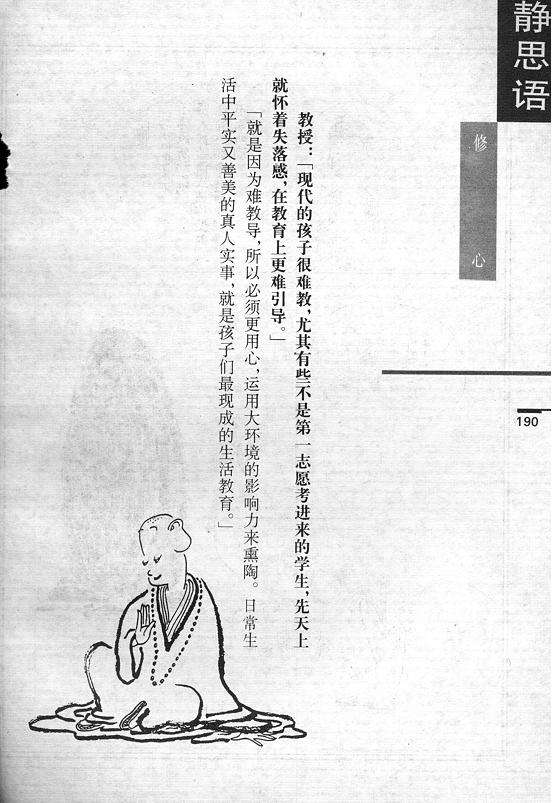 静思语
修心
教授：「现代的孩子很难教，尤其有些不是第一志愿考进来的学生，先天上
就怀着失落感，在教育上更难引导。」
「就是因为难教导，所以必须更用心，运用大环境的影响力来熏陶。日常生
活中平实又善美的真人实事，就是孩子们最现成的生活教育。」
190